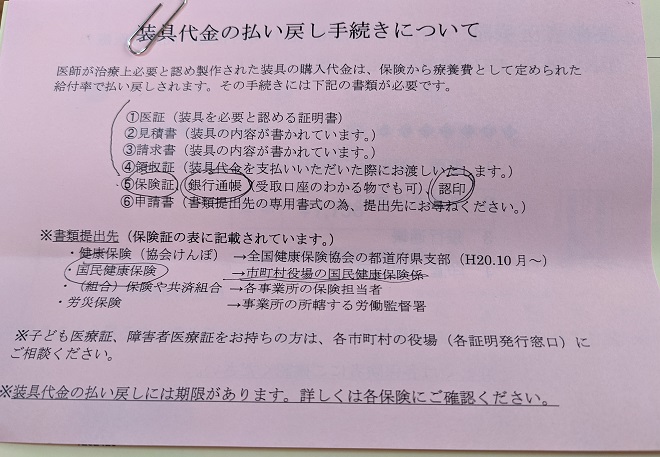 装具代金の払い戻し手続きについて
医師が治療上必要と認め製作された装具の購入代金は、保険から療養費として定められた
給付率で払い戻しされます。その手続きには下記の書類が必要です。
①医証（装具を必要と認める証明書）
②見積書（装具の内容が書かれています。）
③請求書（装具の内容が書かれています。）
④領収証（装具代金を支払いいただいた際にお渡しいたします。）
⑤保険証、銀行通帳（受取口座のわかる物でも可）、認印
⑥申請書（書類提出先の専用書式の為、提出先にお尋ねください。）
※書類提出先（保険証の表に記載されています。）
・健康保険（協会けんぽ） →全国健康保険協会の都道府県支部（H20.10月～）
・国民健康保険 →市町村役場の国民健康保険係
・（組合）保険や共済組合 →各事業所の保険担当者
・労災保険 →事業所の所轄する労働監督署
※子ども医療証、障害者医療証をお持ちの方は、各市町村の役場（各証明発行窓口）に
ご相談ください。
※装具代金の払い戻しには期限があります。詳しくは各保険にご確認ください。